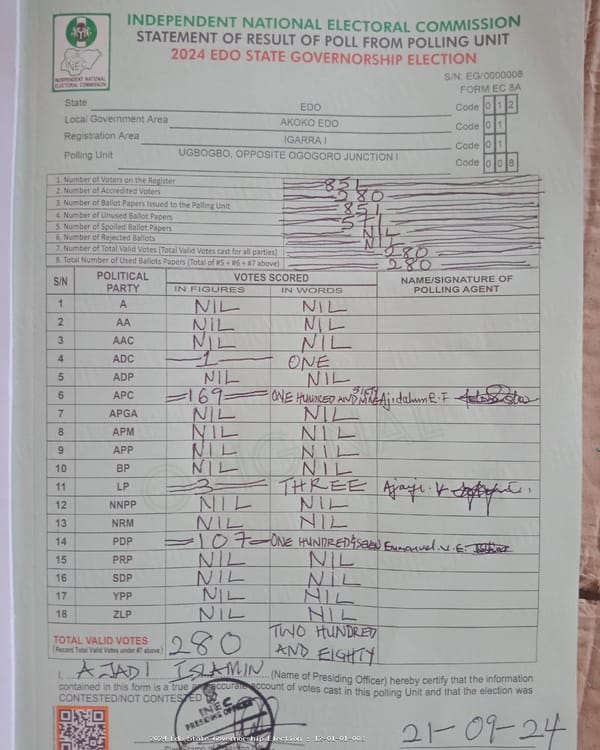 INDEPENDENT NATIONAL ELECTORAL COMMISSION
STATEMENT OF RESULT OF POLL FROM POLLING UNIT
2024 EDO STATE GOVERNORSHIP ELECTION
INEC
INDEPENDENT NATIONAL
ELECTORAL COMMISSION
S/N: EG/0000008
FORM EC 8A
State EDO Code 0 1 2
Local Government Area AKOKO EDO Code 0 1
Registration Area IGARRA I Code 0 1
Polling Unit UGBOGBO, OPPOSITE OGOGORO JUNCTION I Code 0 0 8
1. Number of Voters on the Register 851
2. Number of Accredited Voters 280
3. Number of Ballot Papers Issued to the Polling Unit 851
4. Number of Unused Ballot Papers 571
5. Number of Spoiled Ballot Papers NIL
6. Number of Rejected Ballots NIL
7. Number of Total Valid Votes (Total Valid Votes cast for all parties) 280
8. Total Number of Used Ballots Papers (Total of #5 + #6 + #7 above) 280
S/N POLITICAL PARTY VOTES SCORED NAME/SIGNATURE OF POLLING AGENT
IN FIGURES IN WORDS
1 A NIL NIL
2 AA NIL NIL
3 AAC NIL NIL
4 ADC 1 ONE
5 ADP NIL NIL
6 APC 169 ONE HUNDRED AND SIXTY NINE Ajidahun E. F
7 APGA NIL NIL
8 APM NIL NIL
9 APP NIL NIL
10 BP NIL NIL
11 LP 3 THREE Ajayi. V
12 NNPP NIL NIL
13 NRM NIL NIL
14 PDP 107 ONE HUNDRED & SEVEN Emmanuel. V. E.
15 PRP NIL NIL
16 SDP NIL NIL
17 YPP NIL NIL
18 ZLP NIL NIL
TOTAL VALID VOTES 280 TWO HUNDRED
(Record Total Valid Votes under #7 above) AND EIGHTY
I, AJADI ISLAMIN (Name of Presiding Officer) hereby certify that the information
contained in this form is a true and accurate account of votes cast in this polling Unit and that the election was
CONTESTED/NOT CONTESTED
INEC
PRESIDING OFFICER
21-09-24
2024 Edo State Governorship Election - 12-01-01-008